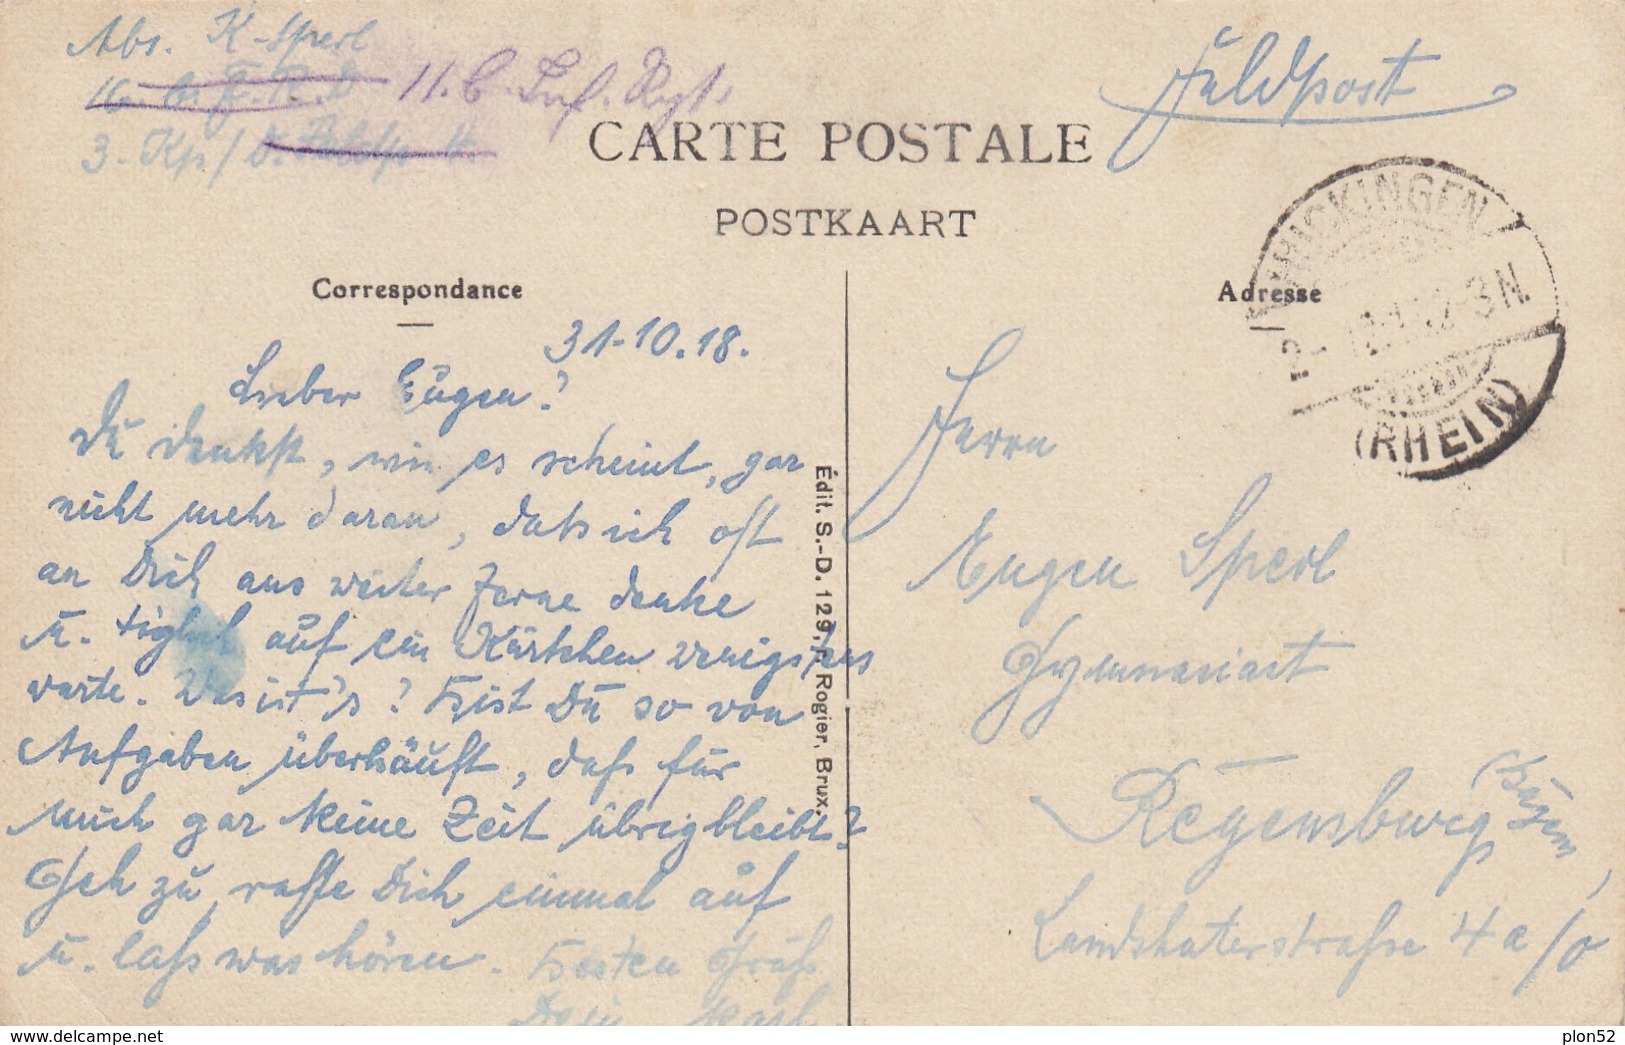 Abs. K. Sperl
16. b. F.R.D 11. b. Inf. Rgt.
3. Kp./
Feldpost
CARTE POSTALE
POSTKAART
Correspondance
31.10.18.
Lieber Eugen!
Du denkst, wie es scheint, gar
nicht mehr daran, dass ich oft
an Dich aus weiter Ferne denke
u. täglich auf ein Kärtchen wenigstens
warte. Was ist's? Bist Du so von
Aufgaben überhäuft, dass für
mich gar keine Zeit übrigbleibt?
Geh zu, raffe Dich einmal auf
u. lass was hören. Besten Gruß
Dein Karl.
Édit. S.-D. 129, r. Rogier, Brux.
Adresse
2-3 N.
(RHEIN)
Herrn
Eugen Sperl
Gymnasiast
Regensburg (Bayern)
Landshuterstraße 4a/0
plon52